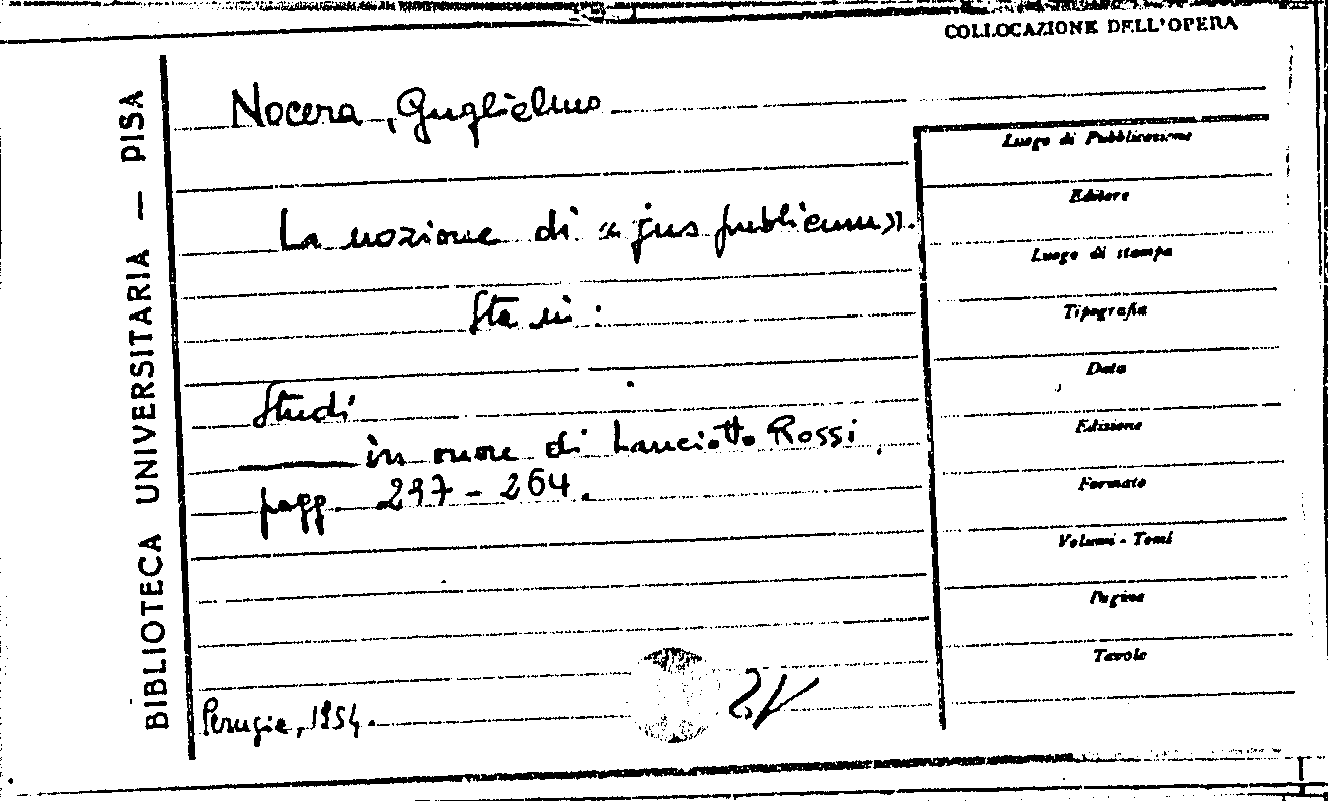 COLLOCAZIONE DELL'OPERA
BIBLIOTECA UNIVERSITARIA — PISA
Nocera, Guglielmo
La nozione di «jus publicum».
Sta in:
Studi
in onore di Lanciotto Rossi
pagg. 297 - 264.
Perugia, 1954.
Luogo di Pubblicazione
Editore
Luogo di stampa
Tipografia
Data
Edizione
Formato
Volumi - Tomi
Pagine
Tavole